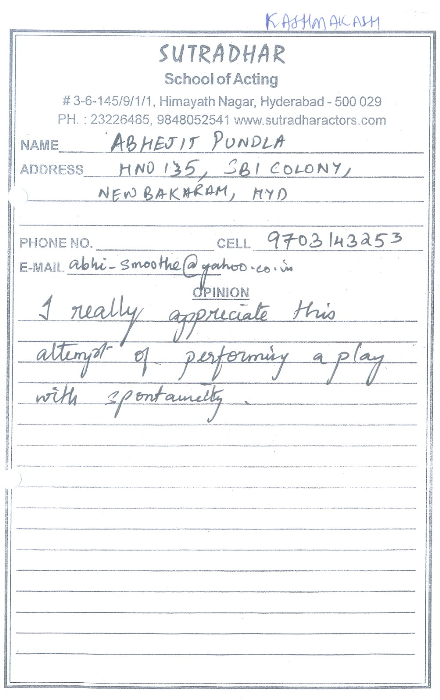 KASHMAKASH
SUTRADHAR
School of Acting
# 3-6-145/9/1/1, Himayath Nagar, Hyderabad - 500 029
PH. : 23226485, 9848052541 www.sutradharactors.com
NAME ABHEJIT PUNDLA
ADDRESS HNO 135, SBI COLONY,
NEW BAKARAM, HYD
PHONE NO. CELL 9703143253
E-MAIL abhi-smoothe@yahoo.co.in
OPINION
I really appreciate this
attempt of performing a play
with spontainetty.